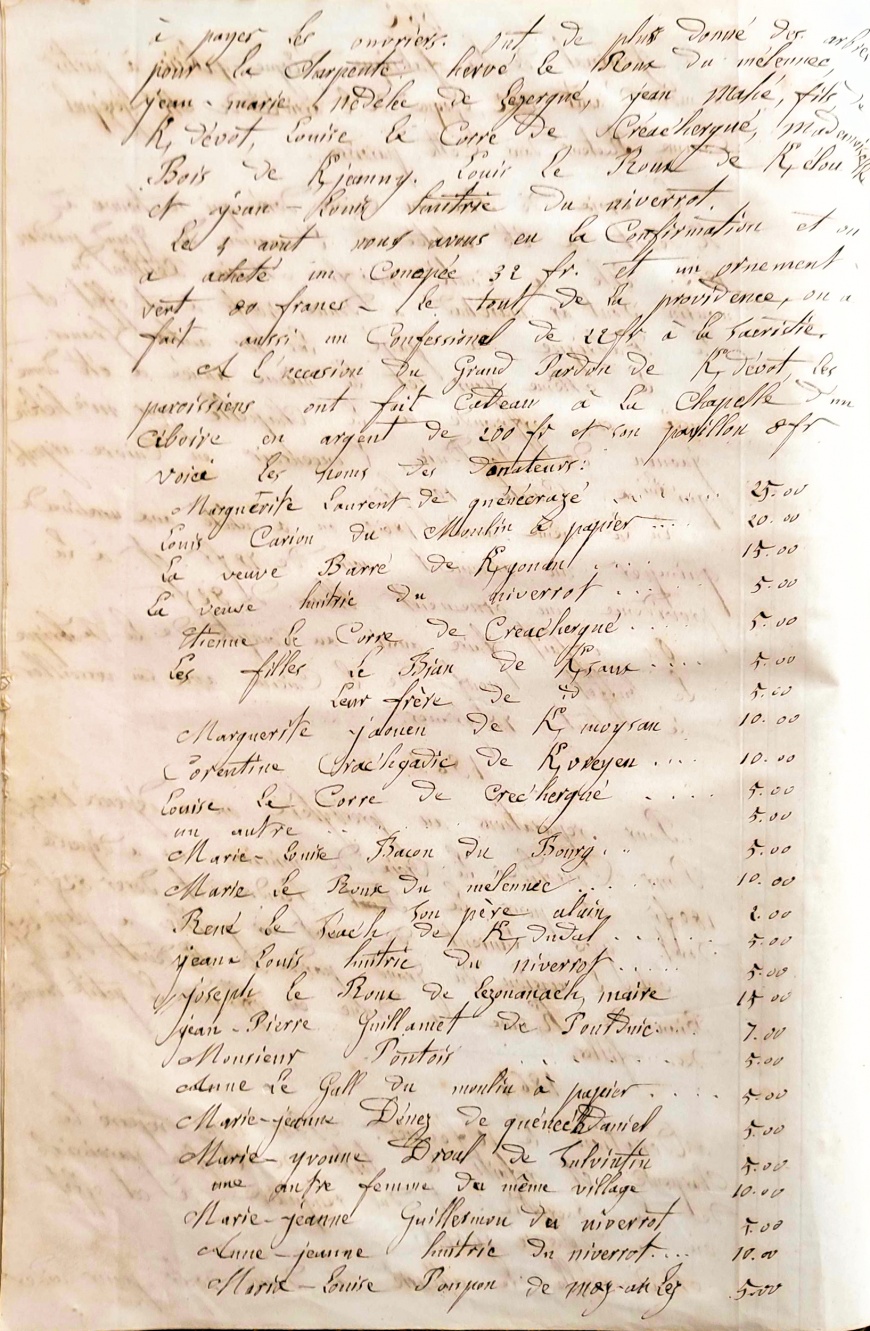 à payer les ouvriers. ont de plus donné des arbres
pour la Charpente hervé le Roux du mélennec,
jean-marie nédélec de lezergué, jean Mahé, fils de
K, dévot, Louise Le Corre de Créachergué, Mademoiselle
Bois de K, jeanny. Louis Le Roux de K, élou
et jean-Louis huitric du niverrot.
Le 4 aout nous avons eu la Confirmation et on
a acheté un Conopée 32 fr. et un ornement
vert 80 francs - le tout de la providence, on a
fait aussi un Confessional de 22 fr à la Sacristie.
A l'occasion du Grand Pardon de K, dévot, les
paroissiens ont fait Cadeau à la Chapelle d'un
Ciboire en argent de 200 fr et son pavillon 8 fr
voici les noms des donateurs:
Marguerite Laurent de quénécrazé ..... 25.00
Louis Carion du Moulin à papier .... 20.00
La veuve Barré de K, gonan .... 15.00
La veuve huitric du niverrot .... 5.00
Etienne le Corre de Creachergué .... 5.00
Les filles Le Bian de K, saux .... 5.00
Leur frère de id 5.00
Marguerite jaouen de K, moysan 10.00
Corentine Crachgadic de K, vreyen .... 10.00
Louise Le Corre de Crechergué .... 5.00
un autre ... 5.00
Marie-Louise Bacon du Bourg. .. 5.00
Marie Le Roux du mélennec .... 10.00
Son père alain 2.00
René Le Séach de K, dudal ..... 5.00
jean Louis huitric du niverrot ..... 5.00
joseph le Roux de Lezouanach, maire 15.00
jean-Pierre Guillamet de Pourduic... 7.00
Monsieur Pontois .... 5.00
Anne Le Gall du moulin à papier .... 5.00
Marie-jeanne Dénez de quénéchdaniel 5.00
Marie-yvonne Droal de Sulvintin 5.00
une autre femme du même village 10.00
Marie-jeanne Guillermou du niverrot 5.00
Anne-jeanne huitric du niverrot.... 10.00
Marie-Louise Poupon de 5.00